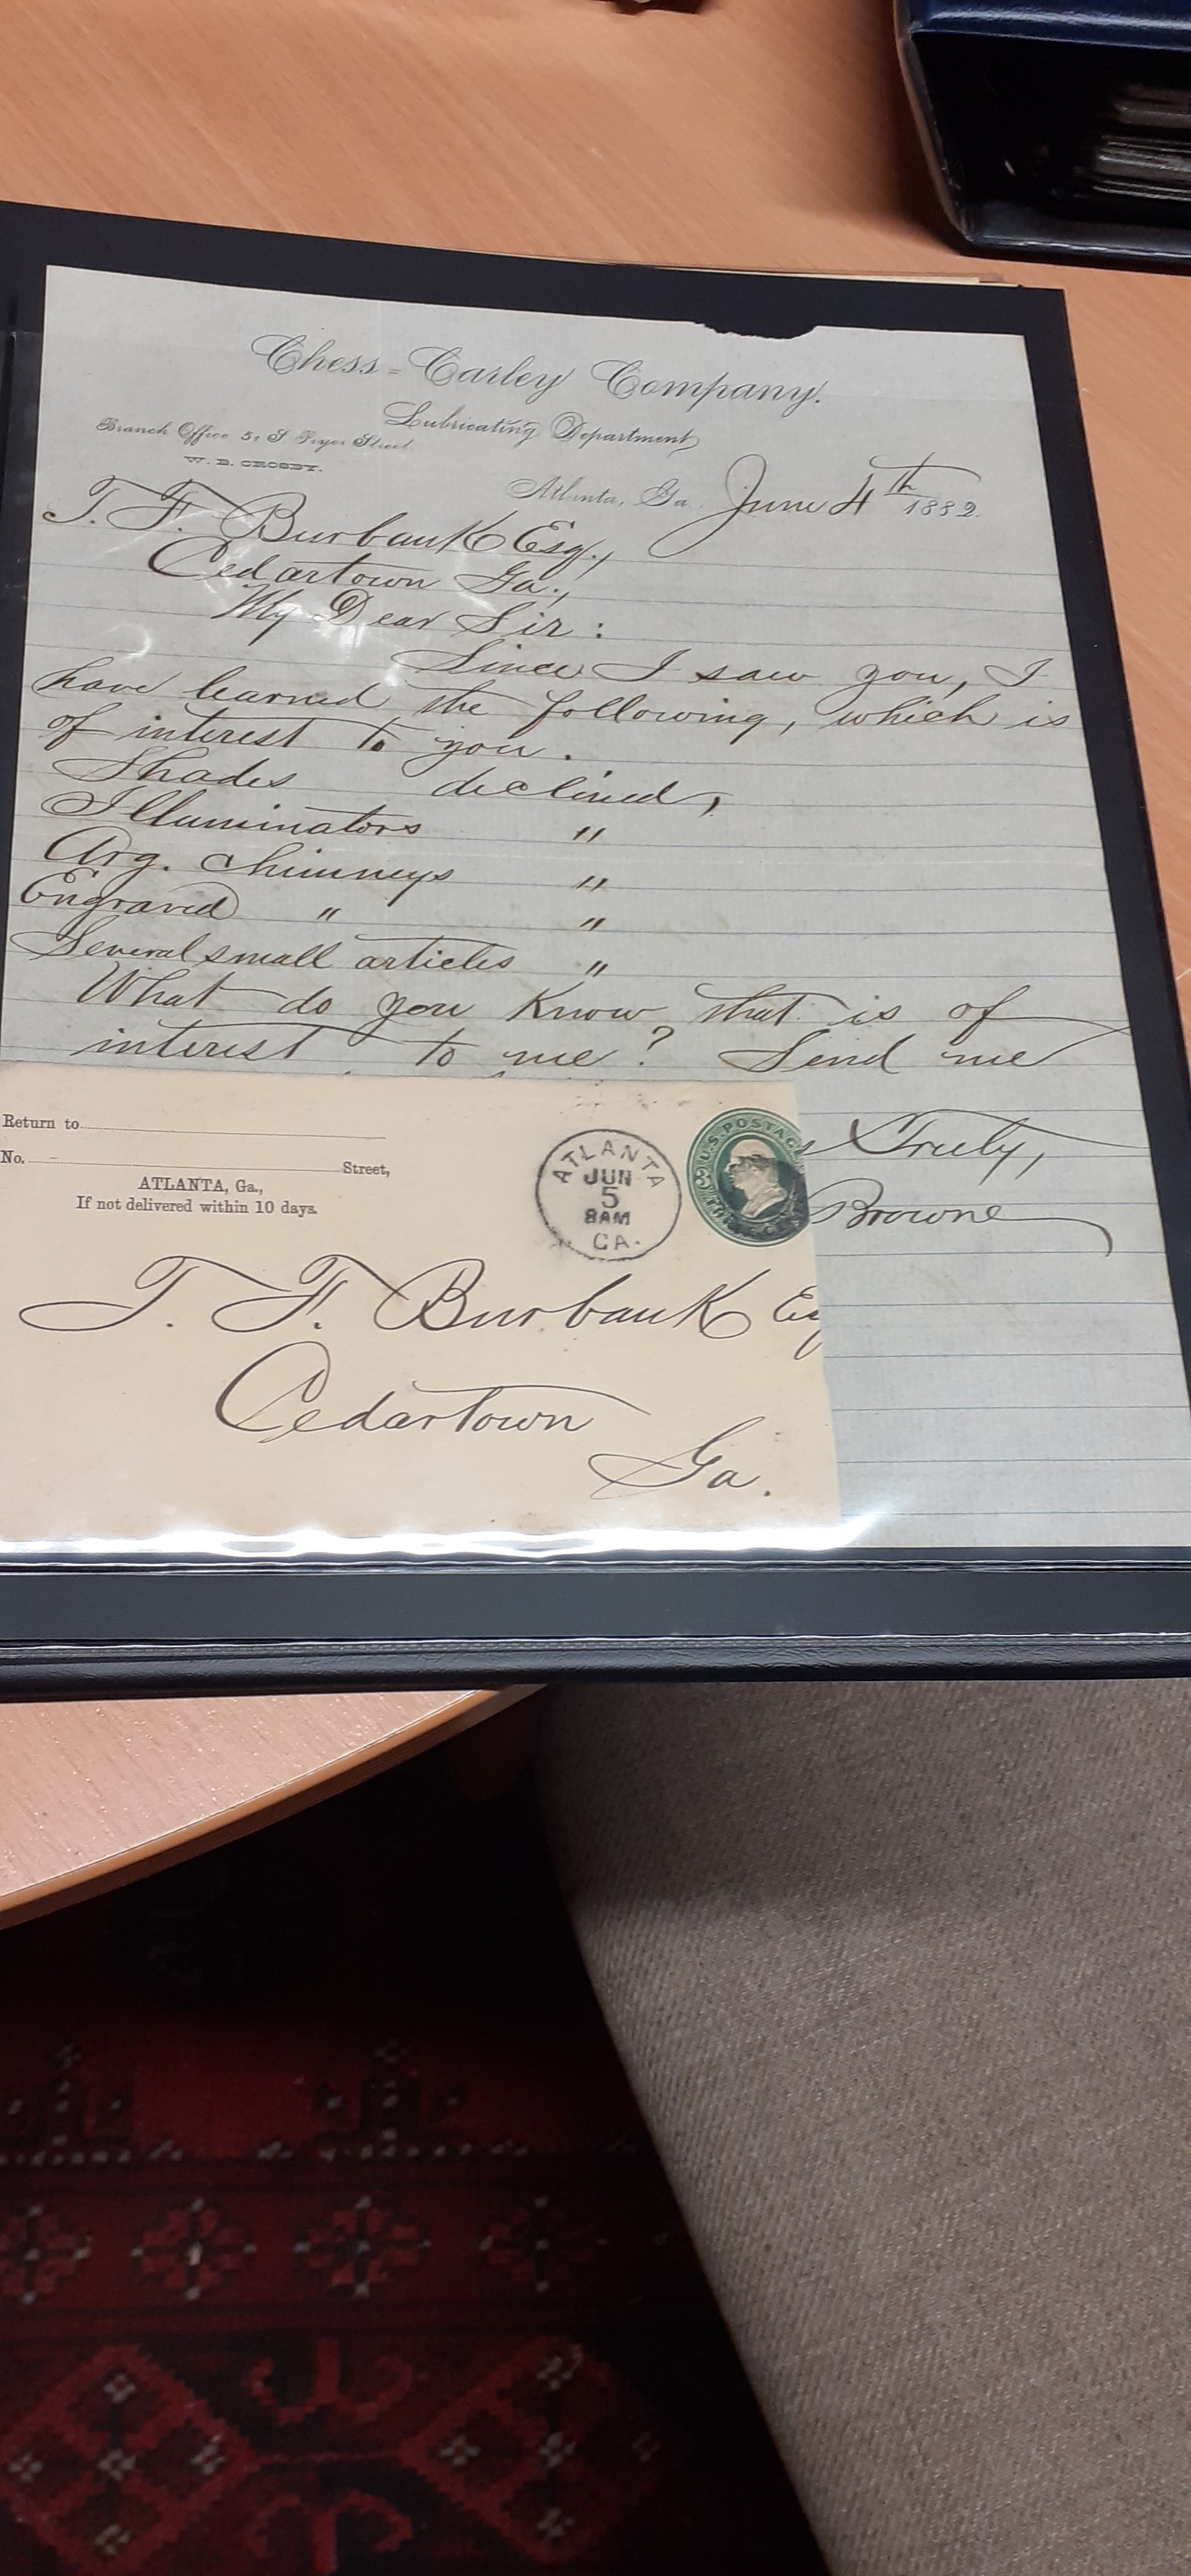 Chess-Carley Company.
Lubricating Department
Branch Office 51 S Pryor Street
W. B. CROSBY.
Atlanta, Ga. June 4th 1882.
T. F. Burbank Esq.,
Cedartown Ga.,
My Dear Sir:
Since I saw you, I
have learned the following, which is
of interest to you.
Shades declined,
Illuminators "
Arg. chimneys "
Engraved " "
Several small articles "
What do you know that is of
interest to me? Send me
s Truly,
Browne
Return to
No. Street,
ATLANTA, Ga.,
If not delivered within 10 days.
ATLANTA
JUN
5
8AM
GA.
U.S. POSTAGE
T. F. Burbank Esq
Cedartown
Ga.